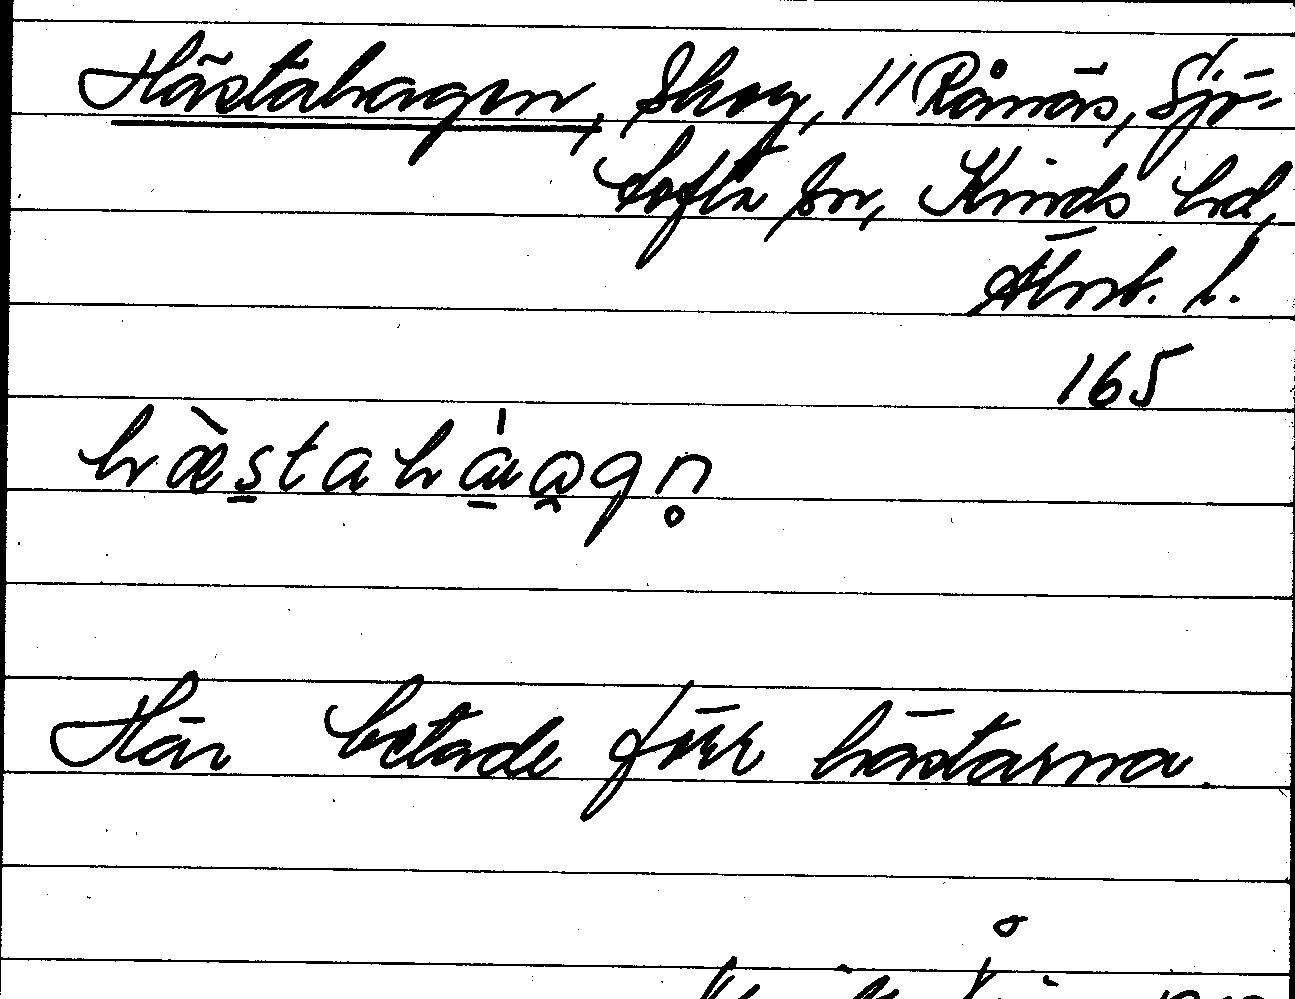 Hästahagen, Skog, 11 Rånäs, Sjö-
tofta sn, Kinds hd,
Älvsb. l.
165
hæ̀stahàagn̥
Här betade förr hästarna.